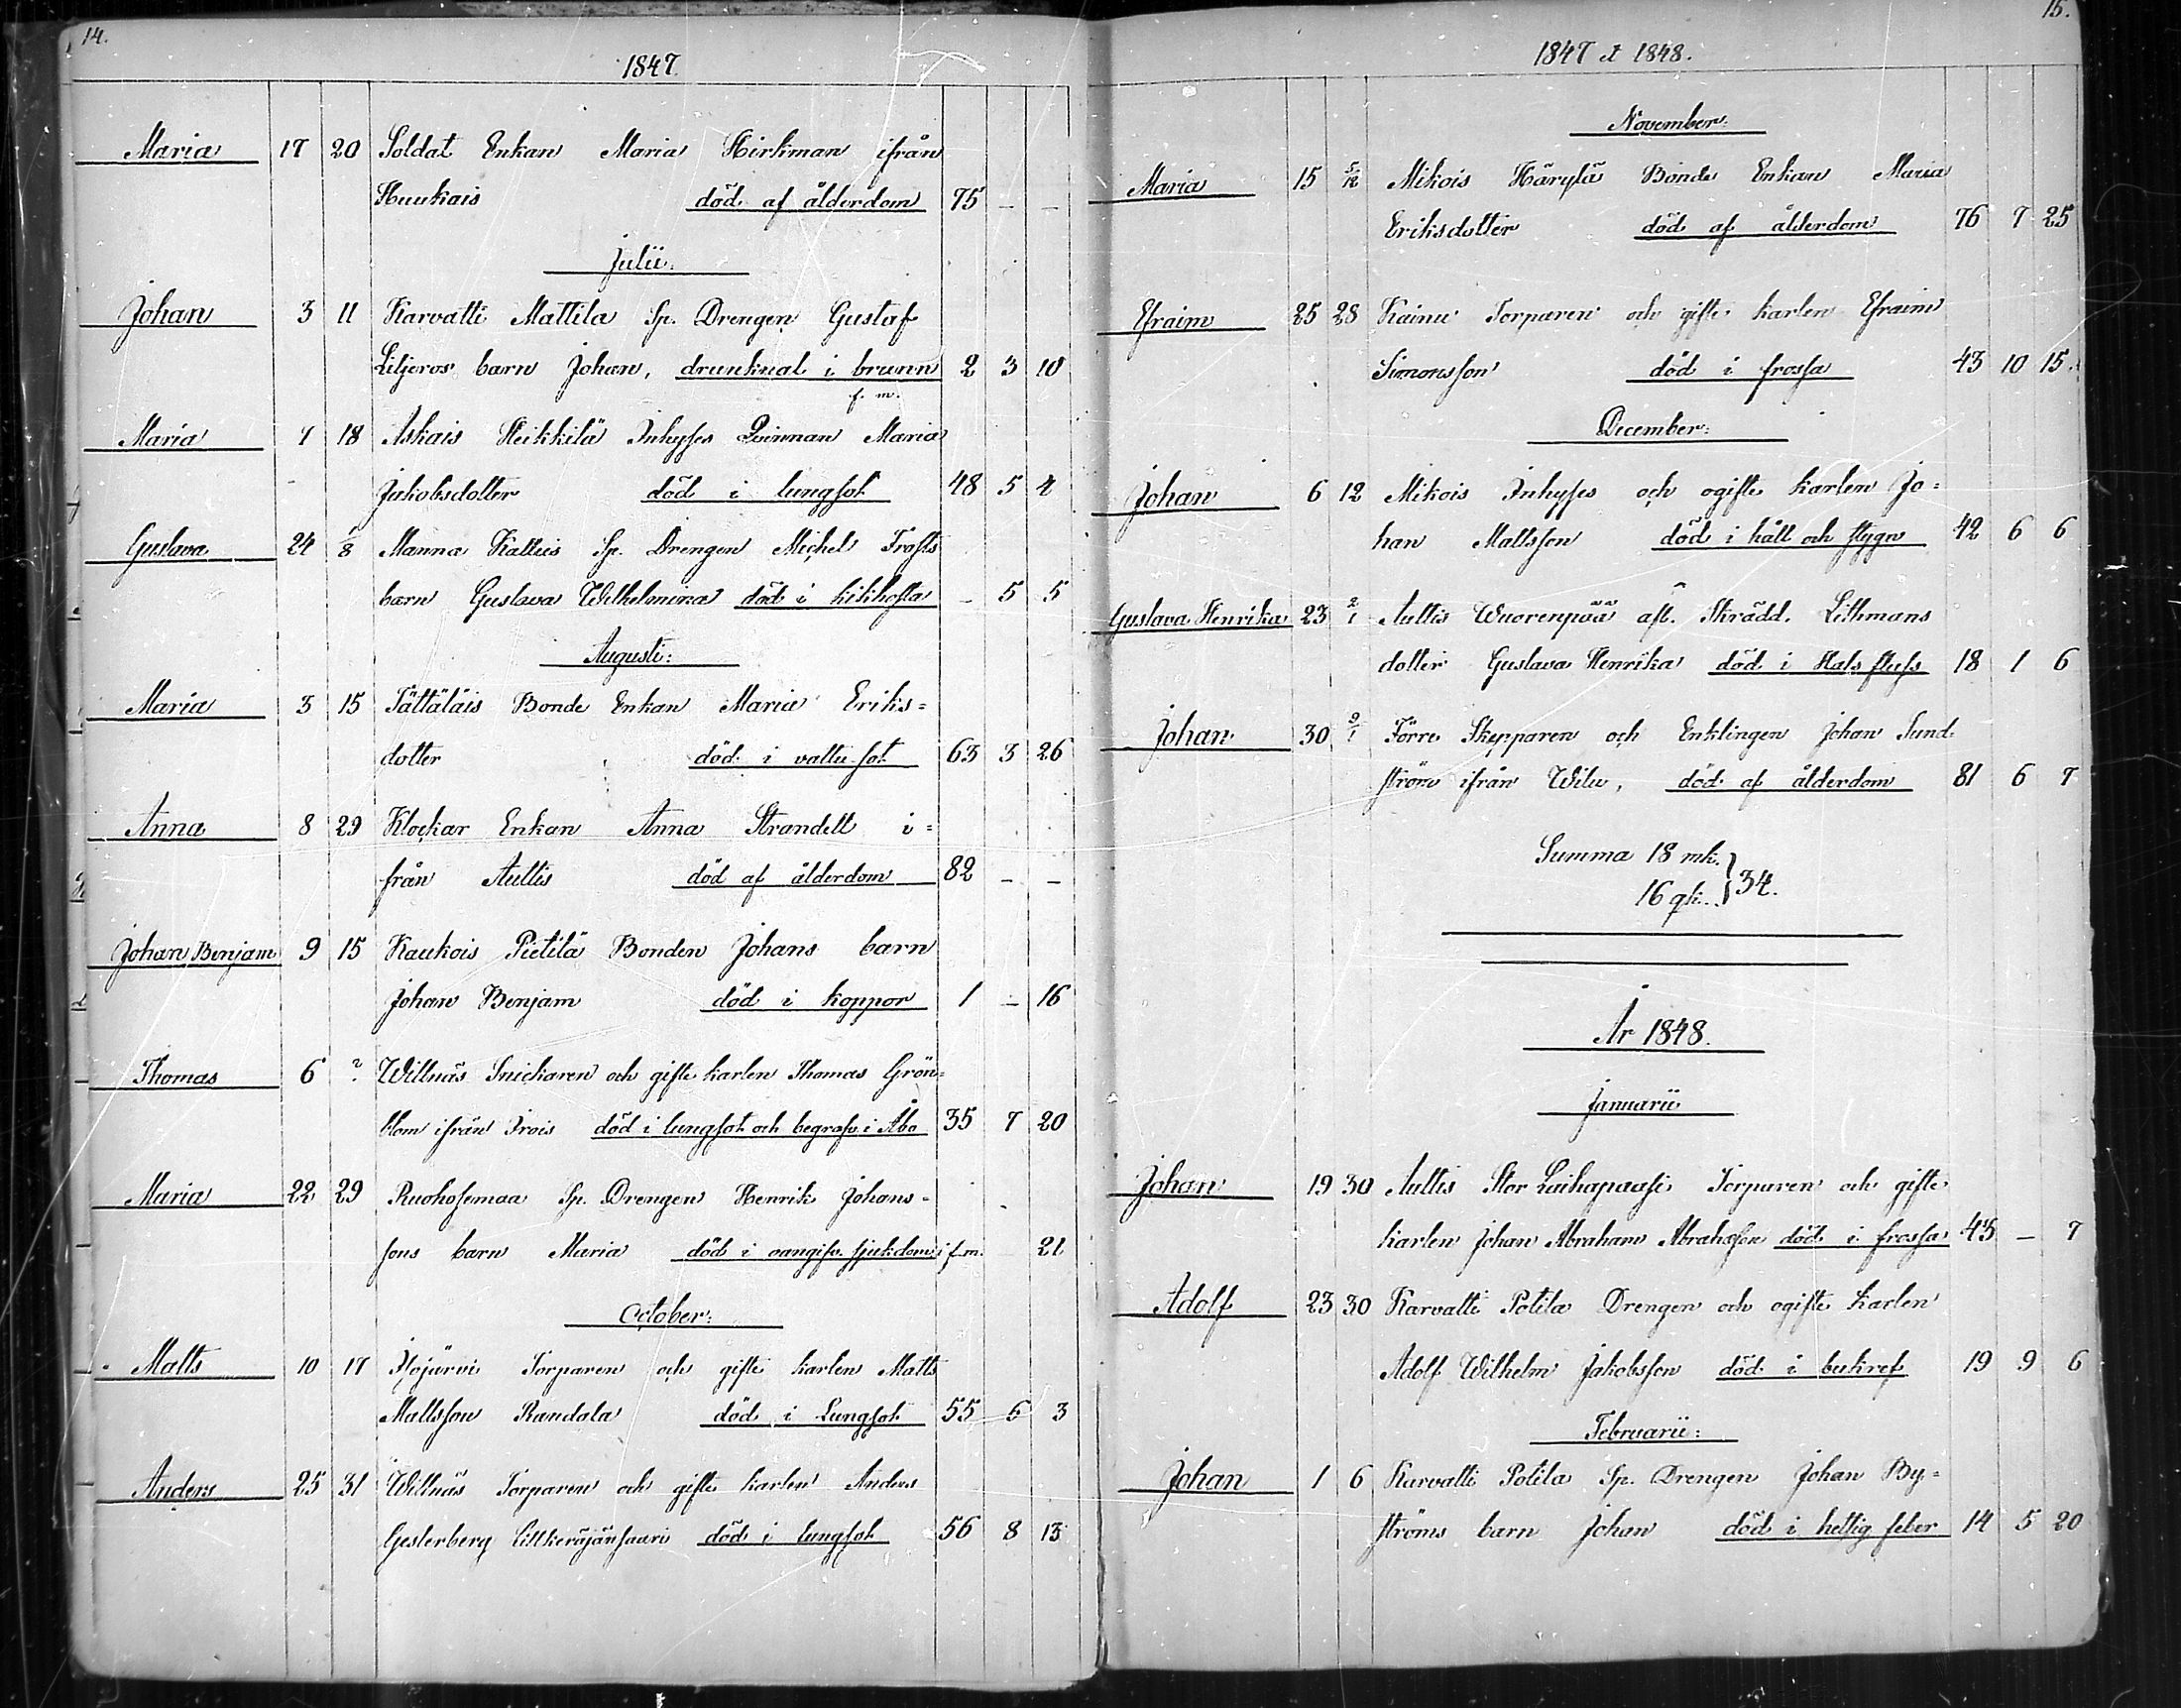 14.
1847.
Maria 17 20 Soldat Enkan Maria Hirkman ifrån
Huukais död af ålderdom 75 – –
Julii:
Johan 3 11 Karvatti Mattila Sp. Drengen Gustaf
Liljeros barn Johan, drunknat i brunn 2 3 10
f. m.
Maria 7 18 Askais Heikkilä Inhyses Qvinnan Maria
Jakobsdotter död i lungsot 48 5 4
Gustava 24 1/8 Manna Kattuis Sp. Drengen Michel Trasts
barn Gustava Wilhelmina död i kikhosta – 5 5
Augusti:
Maria 3 15 Tättäläis Bonde Enkan Maria Eriks=
dotter död i vattu sot 63 3 26
Anna 8 29 Klockar Enkan Anna Strandell i=
från Autlis död af ålderdom 82 – –
Johan Benjam 9 15 Kaukois Pietilä Bonden Johans barn
Johan Benjam död i koppor 1 – 16
Thomas 6 ? Willnäs Snickaren och gifte karlen Thomas Grön=
blom ifrån Irois död i lungsot och begrafv. i Åbo 35 7 20
Maria 22 29 Ruohosemaa Sp. Drengen Henrik Johans=
sons barn Maria död i oangifv. sjukdom i f.m. 21
October:
Matts 10 17 Torparen och gifte karlen Matts
Mattsson Randala död i Lungsot 55 6 3
Anders 25 31 Willnäs Torparen och gifte karlen Anders
Gesterberg död i lungsot 56 8 13
15.
1847 et 1848.
November:
Maria 15 5/12 Mikois Härylä Bonde Enkan Maria
Eriksdotter död af ålderdom 76 7 25
Efraim 25 28 Kainu Torparen och gifte karlen Efraim
Simonsson död i frossa 43 10 15.
December:
Johan 6 12 Mikois Inhyses och ogifte karlen Jo=
han Mattsson död i håll och stygn 42 6 6
Gustava Henrika 23 2/1 Autlis Wuorenpää afl. Skrädd. Lithmans
dotter Gustava Henrika död i Hals fluss 18 1 6
Johan 30 2/1 Förre Skepparen och Enklingen Johan Sund
ström ifrån Wilu, död af ålderdom 81 6 7
Summa 18 mk.
16 qk. } 34.
År 1848.
Januarii
Johan 19 30 Autlis Stor Laihapaasi Torparen och gifte
karlen Johan Abraham Abrahafson död i frossa 45 – 7
Adolf 23 30 Karvatti Potila Drengen och ogifte karlen
Adolf Wilhelm Jakobsson död i bukref 19 9 6
Februarii:
Johan 1 6 Karvatti Potila Sp. Drengen Johan By=
ströms barn Johan död i hettig feber 14 5 20